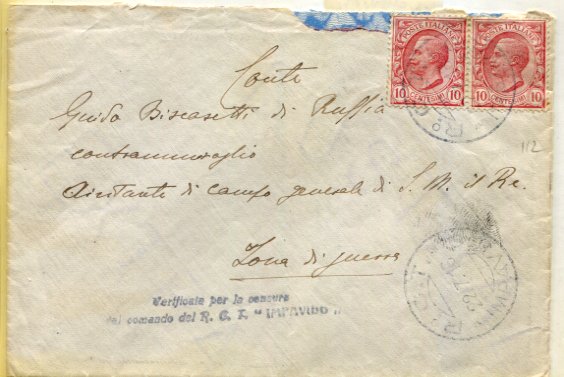 POSTE ITALIANE POSTE ITALIANE
10 CENTESIMI 10 10 CENTESIMI 10
Conte
Guido Biscaretti di Ruffia
contrammiraglio
Aiutante di campo generale di S. M. il Re.
Zona di guerra
112
Verificata per la censura
dal comando del R. C. T. " IMPAVIDO "